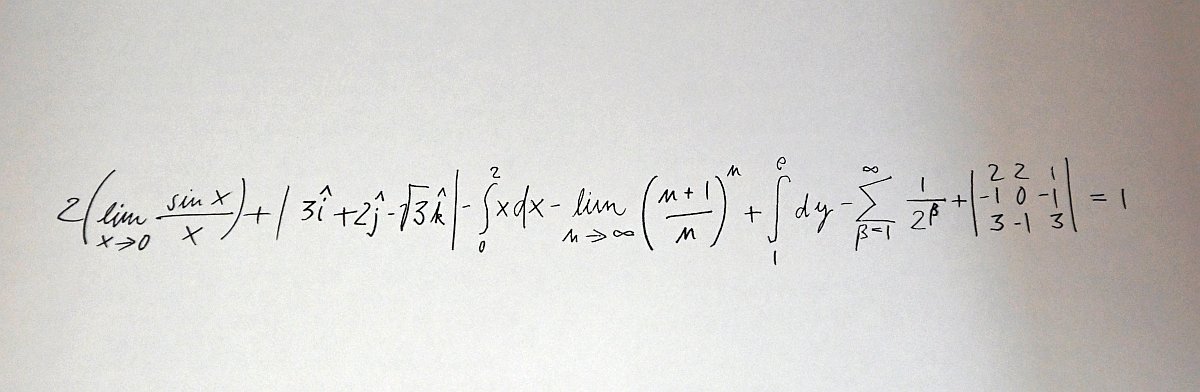 2(lim x→0 sin x / x) + |3î + 2ĵ - √3k̂| - ∫₀² x dx - lim n→∞ ((n+1)/n)ⁿ + ∫₁ᵉ dy - ∑_{β=1}^∞ 1/2^β + |2 2 1; -1 0 -1; 3 -1 3| = 1